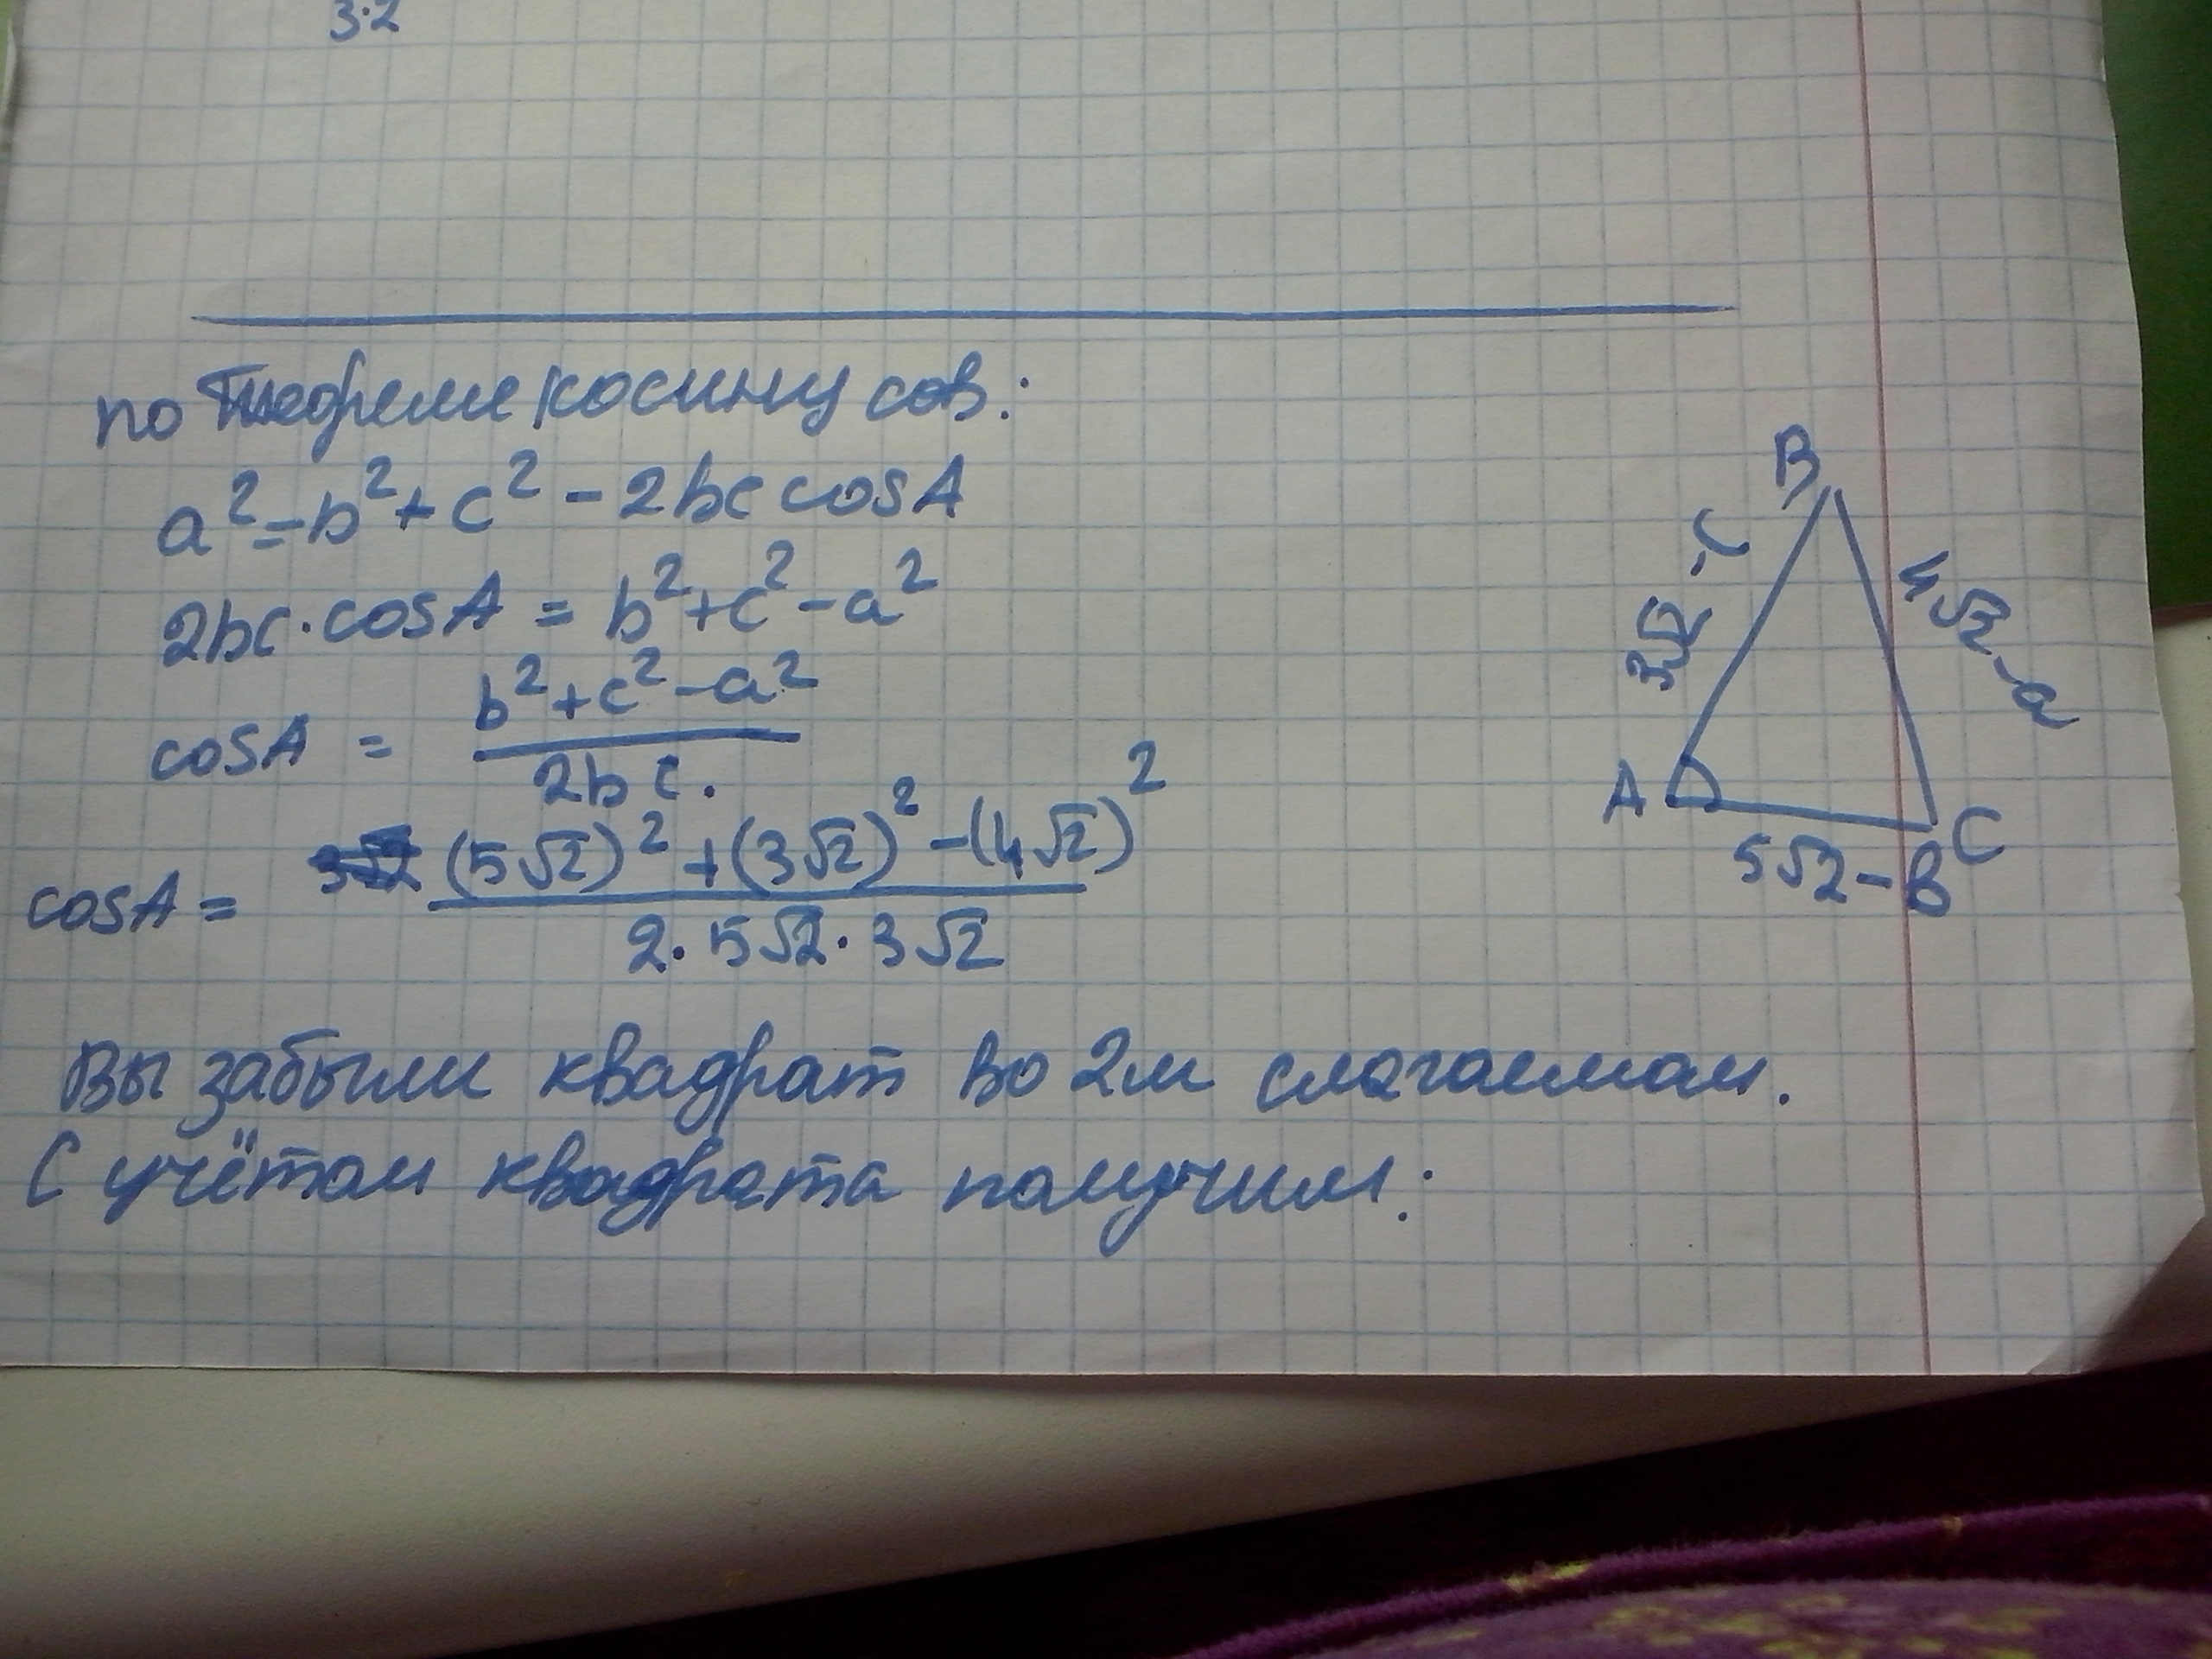 3·2
по теореме косинусов:
a² = b² + c² - 2bc cosA
2bc·cosA = b²+c²-a²
cosA = b²+c²-a² / 2bc.
cosA = (5√2)² + (3√2)² - (4√2)² / 2·5√2·3√2
Вы забыли квадрат во 2м слагаемом.
С учётом квадрата получим:
B
3√2 - c
4√2 - a
A
C
5√2 - B